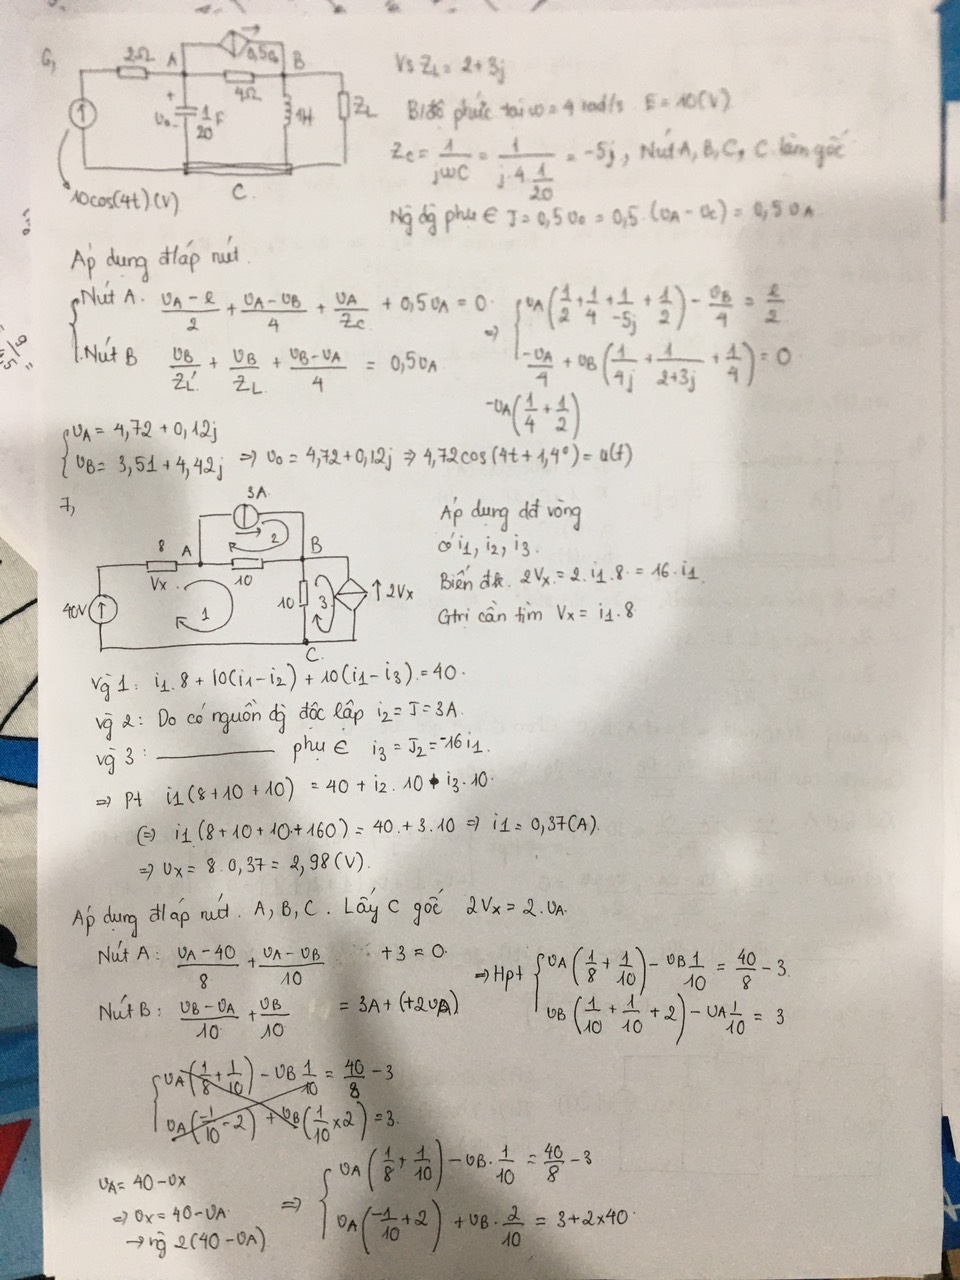 6,
2Ω A 0,5υ₀ B
4Ω
+ υ₀ - 1/20 F
1H
Z_L
C
10cos(4t) (V)
Vs Z_L = 2+3j
Biđổ phức tại ω = 4 rad/s E = 10(V)
Z_C = 1/(jωC) = 1/(j.4.1/20) = -5j, Nút A, B, C, C làm gốc
Ng dg phụ ∈ J = 0,5υ₀ = 0,5.(υ_A - υ_C) = 0,5υ_A
Áp dụng đláp nút.
Nút A. (υ_A - e)/2 + (υ_A - υ_B)/4 + υ_A/Z_C + 0,5υ_A = 0 ⇒ υ_A(1/2 + 1/4 + 1/-5j + 1/2) - υ_B/4 = e/2
Nút B υ_B/Z_L' + υ_B/Z_L + (υ_B - υ_A)/4 = 0,5υ_A
-υ_A/4 + υ_B(1/4j + 1/(2+3j) + 1/4) = 0
-υ_A(1/4 + 1/2)
υ_A = 4,72 + 0,12j
υ_B = 3,51 + 4,42j ⇒ υ₀ = 4,72 + 0,12j ⇒ 4,72cos(4t + 1,4°) = u(t)
7,
3A
8 A 2 B
Vx. 10
40V 1 10 3 ↑2Vx
C.
Áp dụng dđ vòng
có i1, i2, i3.
Biến đk. 2Vx = 2.i1.8 = 16.i1
Gtrị cần tìm Vx = i1.8
Vg 1: i1.8 + 10(i1-i2) + 10(i1-i3) = 40.
Vg 2: Do có nguồn dg độc lập i2 = J = 3A.
Vg 3: ———— phụ ∈ i3 = J2 = -16i1.
⇒ Pt i1(8+10+10) = 40 + i2.10 + i3.10.
(=) i1(8+10+10+160) = 40 + 3.10 ⇒ i1 = 0,37(A).
⇒ υx = 8.0,37 = 2,98(V).
Áp dụng đláp nút. A, B, C. Lấy C gốc 2Vx = 2.υ_A.
Nút A: (υ_A - 40)/8 + (υ_A - υ_B)/10 + 3 = 0.
Nút B: (υ_B - υ_A)/10 + υ_B/10 = 3A + (+2υ_A)
⇒ Hpt υ_A(1/8 + 1/10) - υ_B 1/10 = 40/8 - 3.
υ_B(1/10 + 1/10 + 2) - υ_A 1/10 = 3
υ_A(1/8 + 1/10) - υ_B 1/10 = 40/8 - 3
υ_A(-1/10 - 2) + υ_B(1/10 × 2) = 3.
υ_A = 40 - υx
⇒ υx = 40 - υ_A.
→ ng 2(40 - υ_A)
⇒ υ_A(1/8 + 1/10) - υ_B.1/10 = 40/8 - 3
υ_A(-1/10 + 2) + υ_B.2/10 = 3 + 2×40.